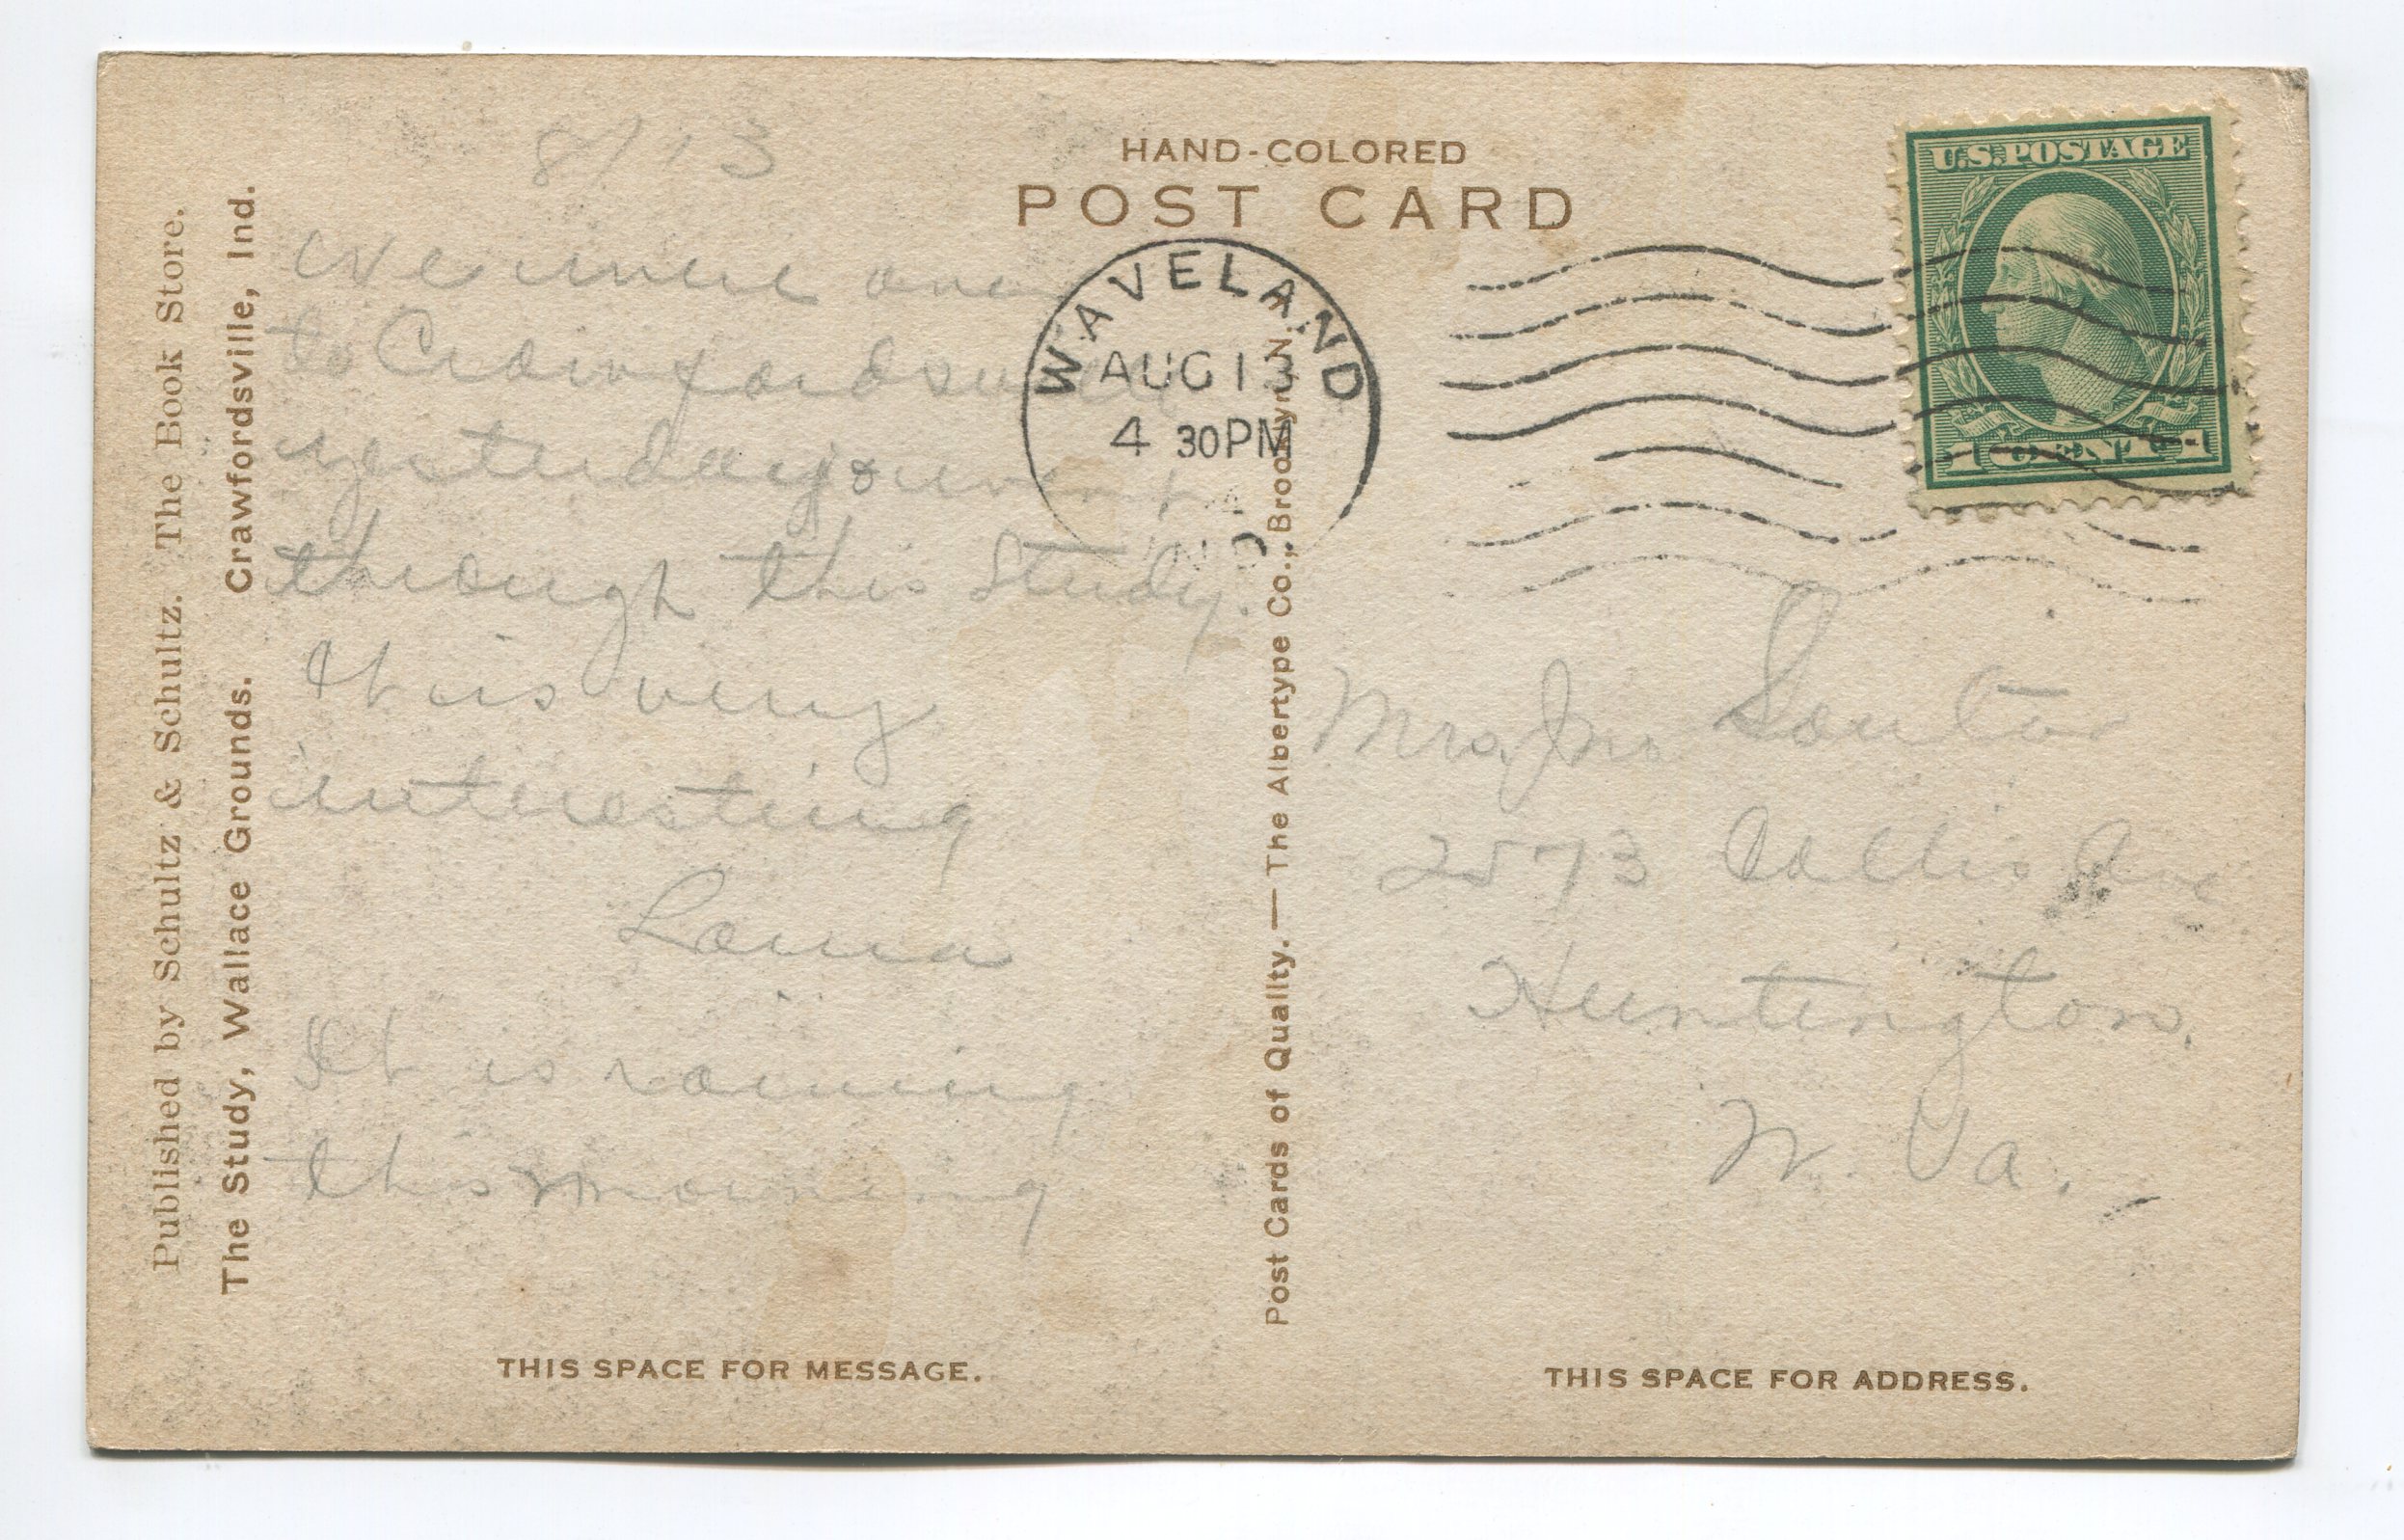 Published by Schultz & Schultz. The Book Store.
The Study, Wallace Grounds. Crawfordsville, Ind.
8/13
We were over
to Crawfordsville
yesterday & went
through this Study.
It is very
interesting
It is raining
this morning
THIS SPACE FOR MESSAGE.
HAND-COLORED
POST CARD
WAVELAND
AUG 13
4 30PM
IND
Post Cards of Quality.—The Albertype Co., Brooklyn, N.
U.S. POSTAGE
1 CENT 1
Mrs. Jno
2573 Collis Ave
Huntington,
W. Va.
THIS SPACE FOR ADDRESS.